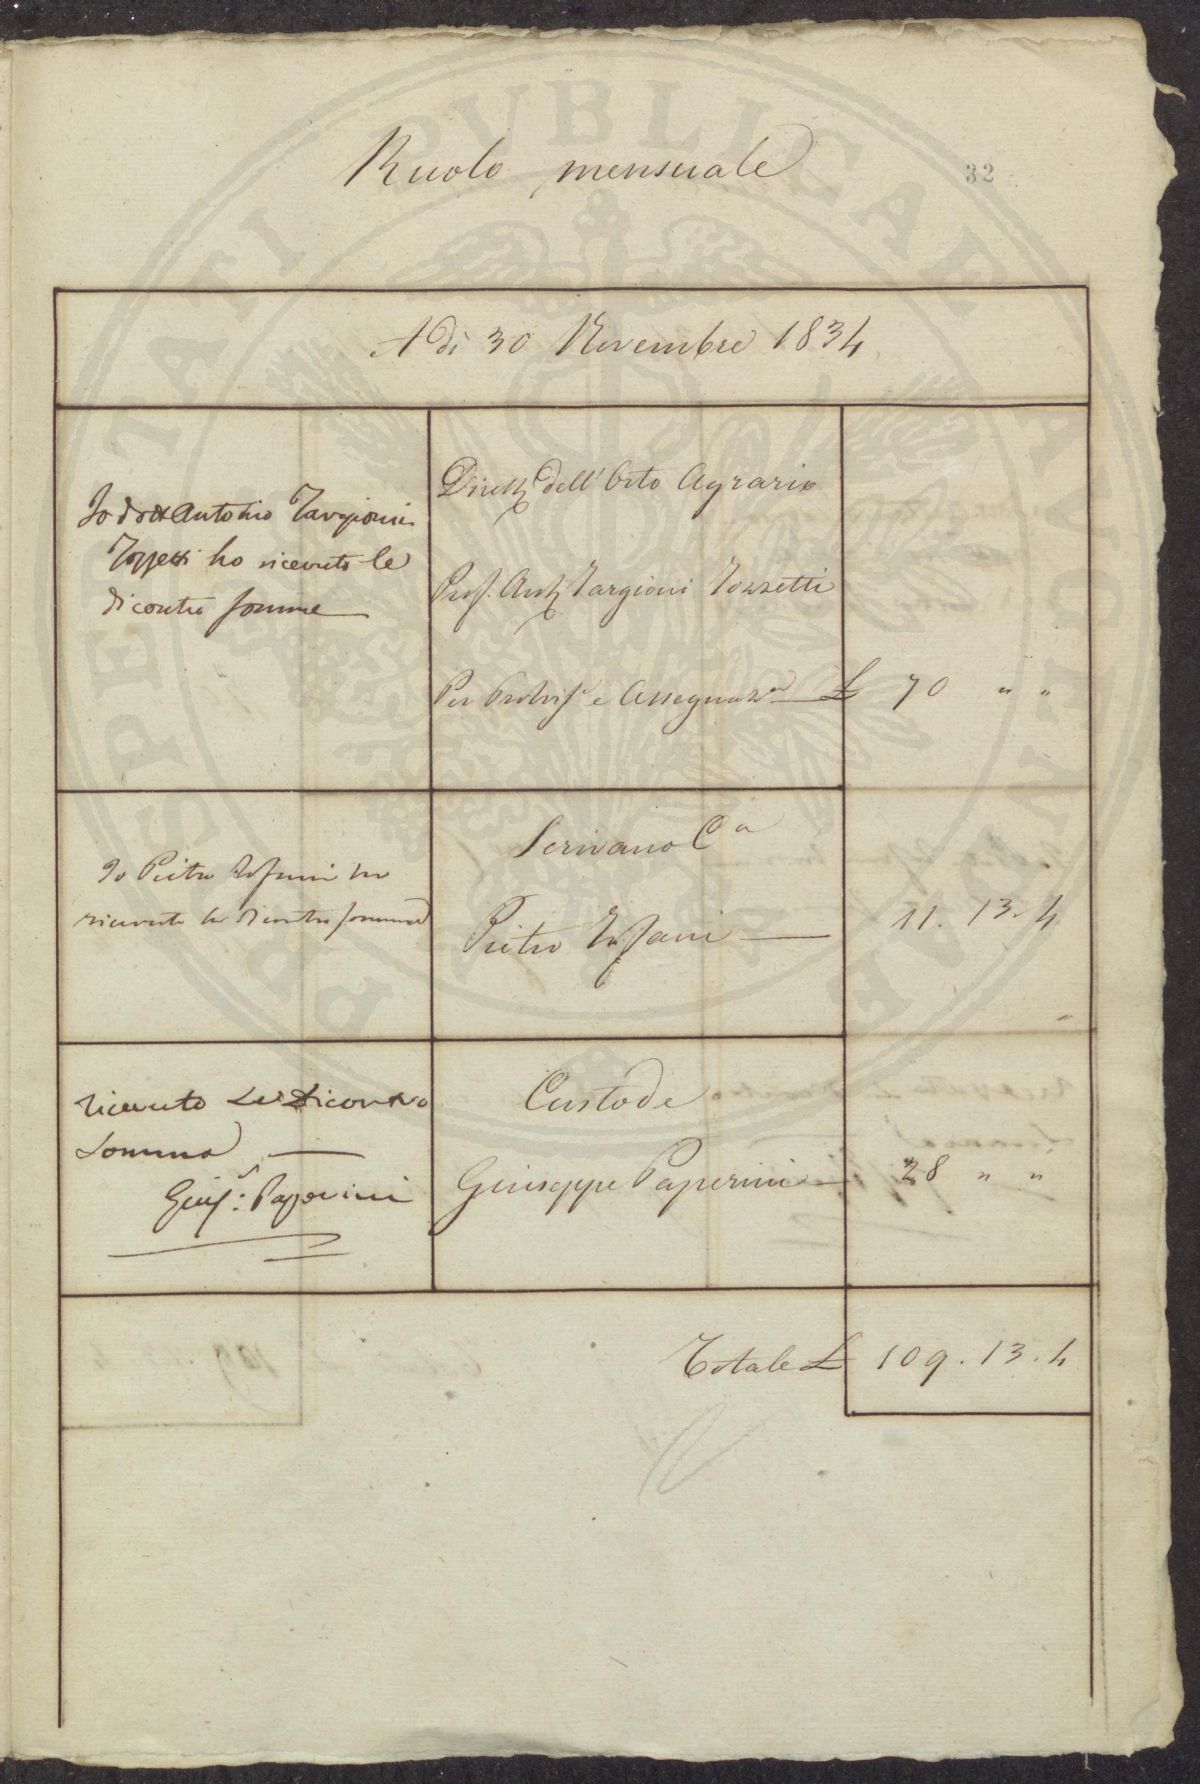 Ruolo mensuale
32
A dì 30 Novembre 1834
Io dott Antonio Targioni
Tozzetti ho ricevuto le
di contro somme
Dirett dell'Orto Agrario
Prof. Ant Targioni Tozzetti
Per Provvis e Assegnaz £ 70 " "
Io Pietro ho
ricevuto la di contro somma
Scrivano Ca
Pietro
11. 13. 4
ricevuto La di contro
Somma
Giuse: Paperini
Custode
Giuseppe Paperini
28 " "
Totale £ 109. 13. 4